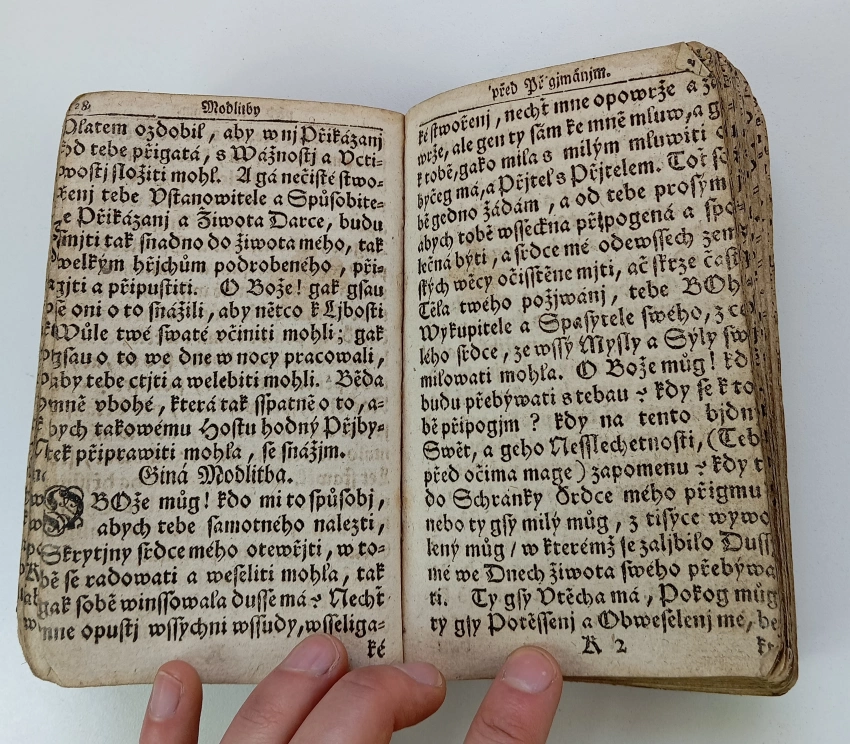 Modlitby
Zlatem ozdobil, aby w nj Přikázanj
od tebe přigatá, s Wážnostj a Vcti-
wostj složiti mohl. A gá nečisté stwo-
řenj tebe Vstanowitele a Spůsobite-
le Přikázanj a Života Darce, budu
smjti tak snadno do života mého, tak
welkým hřjchům podrobeného, při-
gjti a připustiti. O Bože! gak gsau
se oni o to snážili, aby nětco k Ljbosti
Wůle twé swaté včiniti mohli; gak
gsau o to we dne w nocy pracowali,
aby tebe ctjti a welebiti mohli. Běda
mně vbohé, která tak sspatně o to, a-
bych takowému Hostu hodný Přjby-
tek připrawiti mohla, se snážjm.
Giná Modlitba.
O BOže můg! kdo mi to způsobj,
abych tebe samotného nalezti,
Skrytjny srdce mého otewřjti, w to-
bě se radowati a weseliti mohla, tak
gak sobě winssowala dusse má? Nechť
mne opustj wssychni wssudy, wsseliga-
ké
před Přigjmánjm.
ké stwořenj, nechť mne opowrže a
wrže, ale gen ty sám ke mně mluw, a
k tobě, gako milá s milým mluwiti
byčeg má, a Přjtel s Přjtelem. Toť
bě gedno žádám, a od tebe prosým
abych tobě wssecka připogená a spo-
lečná býti, a srdce mé ode wssech zem-
ských wěcy očisstěné mjti, ač skrze
Těla twého požjwánj, tebe BOh
Wykupitele a Spasytele swého, z ce-
lého srdce, ze wssý Mysly a Sýly swé
milowati mohla. O Bože můg!
budu přebýwati s tebau? kdy se k to-
bě připogjm? kdy na tento bjdn
Swět, a geho Nesslechetnosti, (Teb
před očima mage) zapomenu? kdy
do Schránky Srdce mého přigmu
nebo ty gsý milý můg, z tisýce wywo
lený můg / w kterémž se zaljbilo Dussy
mé we Dnech života swého přebýwa
ti. Ty gsy Vtěcha má, Pokog můg
ty gsy Potěssenj a Obweselenj mé,
K 2